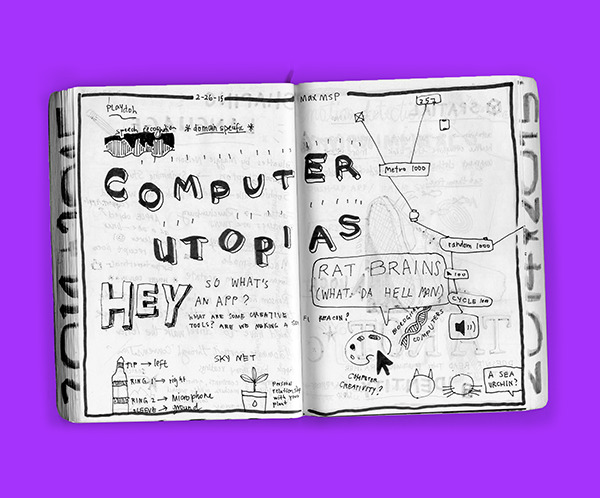 2-26-15
Max MSP
Playdoh
speech recognition * domain specific *
COMPUTER
UTOPIAS
HEY
SO WHAT'S
AN APP?
WHAT ARE SOME CREATIVE
TOOLS? ARE WE MAKING A
TIP → left
RING 1 → right
RING 2 → Microphone
SLEEVE → ground
SKY NET
Personal
relationship
with your
plant
757
Metro 1000
random 1000
100
CYCLE
RAT BRAINS
(WHAT DA HELL MAN)
BEACON?
BIOLOGICAL
COMPUTERS
COMPUTER
CREATIVITY?
A SEA
URCHIN?
2015